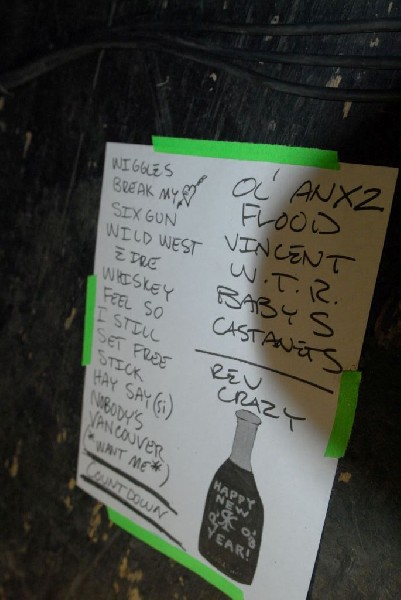 WIGGLES
BREAK MY
SIXGUN
WILD WEST
EIRE
WHISKEY
FEEL SO
I STILL
SET FREE
STICK
HAY SAY (Si)
NOBODY'S
VANCOUVER
(*WANT ME*)
COUNTDOWN
OL' ANX2
FLOOD
VINCENT
W.T.R.
BABYS
CASTANETS
REV
CRAZY
HAPPY
NEW
YEAR!